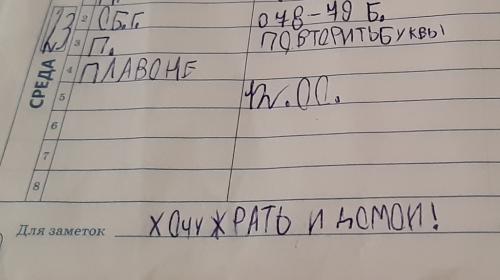 СРЕДА
23
2 СБ.Г. 078-79 Б.
3 П. ПОВТОРИТЬ БУКВЫ
4 ПЛАВОНЕ
5 12.00.
6
7
8
Для заметок ХОЧУ ЖРАТЬ И ДОМОЙ!